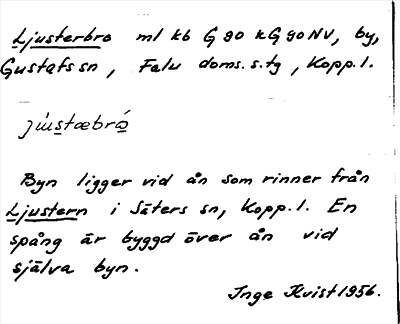 Ljusterbro ml kb G 90 kG 90 NV, by,
Gustafs sn, Falu doms.s.tg, Kopp.l.
jùstæbró
Byn ligger vid ån som rinner från
Ljustern i Säters sn, Kopp.l. En
spång är byggd över ån vid
själva byn.
Inge Kvist 1956.